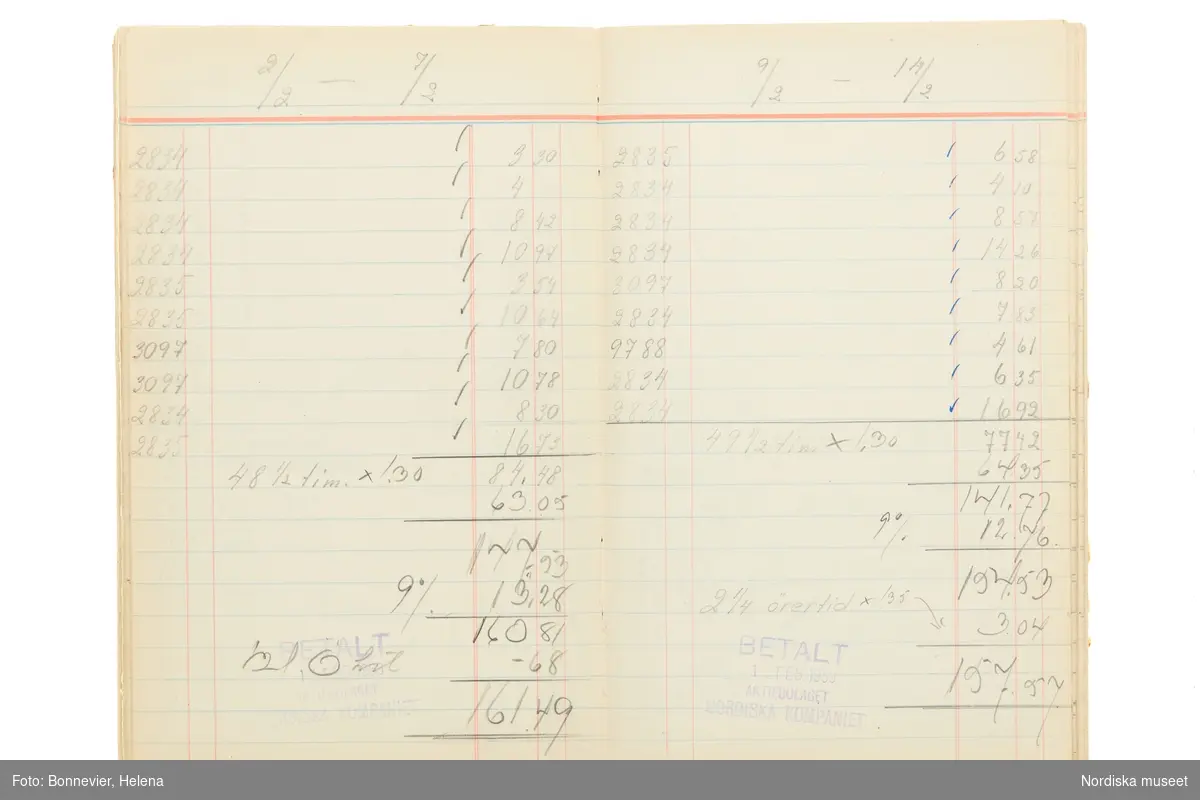 2/2 — 7/2
2834 3 30
2834 4
2834 8 42
2834 10 97
2835 3 54
2835 10 64
3097 7 80
3097 10 78
2834 8 30
2835 16 73
48 1/2 tim. x 1.30 84.48
63.05
147.53
9% 13.28
160 81
-68
161.49
BETALT
KOMPANIET
9/2 — 14/2
2835 6 58
2834 4 10
2834 8 57
2834 14 26
3097 8 20
2834 7 83
9788 4 61
2834 6 35
2834 16 92
49 1/2 tim. x 1.30 77 42
64 35
141.77
9% 12.76.
154.53
2 1/4 övertid x 1.35
3.04
157.57
BETALT
FEB 1933
AKTIEBOLAGET
NORDISKA KOMPANIET
Foto: Bonnevier, Helena
Nordiska museet